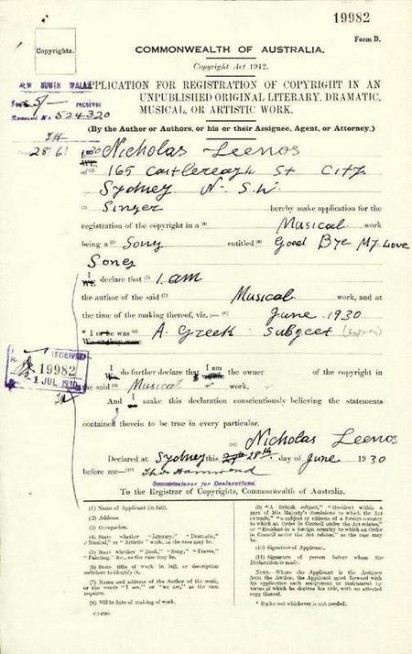 19982
Form B.
Copyrights.
COMMONWEALTH OF AUSTRALIA.
Copyright Act 1912.
APPLICATION FOR REGISTRATION OF COPYRIGHT IN AN
UNPUBLISHED ORIGINAL LITERARY, DRAMATIC,
MUSICAL, OR ARTISTIC WORK.
(By the Author or Authors, or his or their Assignee, Agent, or Attorney.)
NEW SOUTH WALES
5/- RECEIVED
524320
28 6
Nicholas Leenos
of (2) 165 Castlereagh St City
Sydney N. S. W.
(3) Singer hereby make application for the
registration of the copyright in a (4) Musical work
being a (5) Song entitled (6) Good Bye My Love
Song
I We declare that (7) I am
the author of the said (4) Musical work, and at
the time of the making thereof, viz.:—(8) June 1930
* I or he was (9) A Greek Subject
We or they were
RECEIVED
19982
1 JUL 1930
I We do further declare that I am we are the owner of the copyright in
the said (4) Musical work,
And I We make this declaration conscientiously believing the statements
contained therein to be true in every particular.
(10) Nicholas Leenos
Declared at Sydney this 28th day of June 1930
before me—(11) Hammond
Commissioner for Declarations.
To the Registrar of Copyrights, Commonwealth of Australia.
(1) Name of Applicant in full.
(2) Address.
(3) Occupation.
(4) State whether "Literary," "Dramatic,"
"Musical," or "Artistic" work, as the case may be.
(5) State whether "Book," "Song," "Drama,"
"Painting," &c., as the case may be.
(6) State title of work in full, or description
sufficient to identify it.
(7) Name and address of the Author of the work,
or the words "I am," or "we are," as the case
requires.
(8) Will be date of making of work.
(9) "A British subject," "Resident within a
part of His Majesty's dominions to which the Act
extends," "a subject or citizen of a foreign country
to which an Order in Council under the Act relates,"
or "Resident in a foreign country to which an Order
in Council under the Act relates," as the case may
be.
(10) Signature of Applicant.
(11) Signature of person before whom the
Declaration is made.
NOTE.—Where the Applicant is the Assignee
from the Author, the Applicant must forward with
his application each assignment or instrument by
virtue of which he derives his title, with an attested
copy thereof.
* Strike out whichever is not needed.